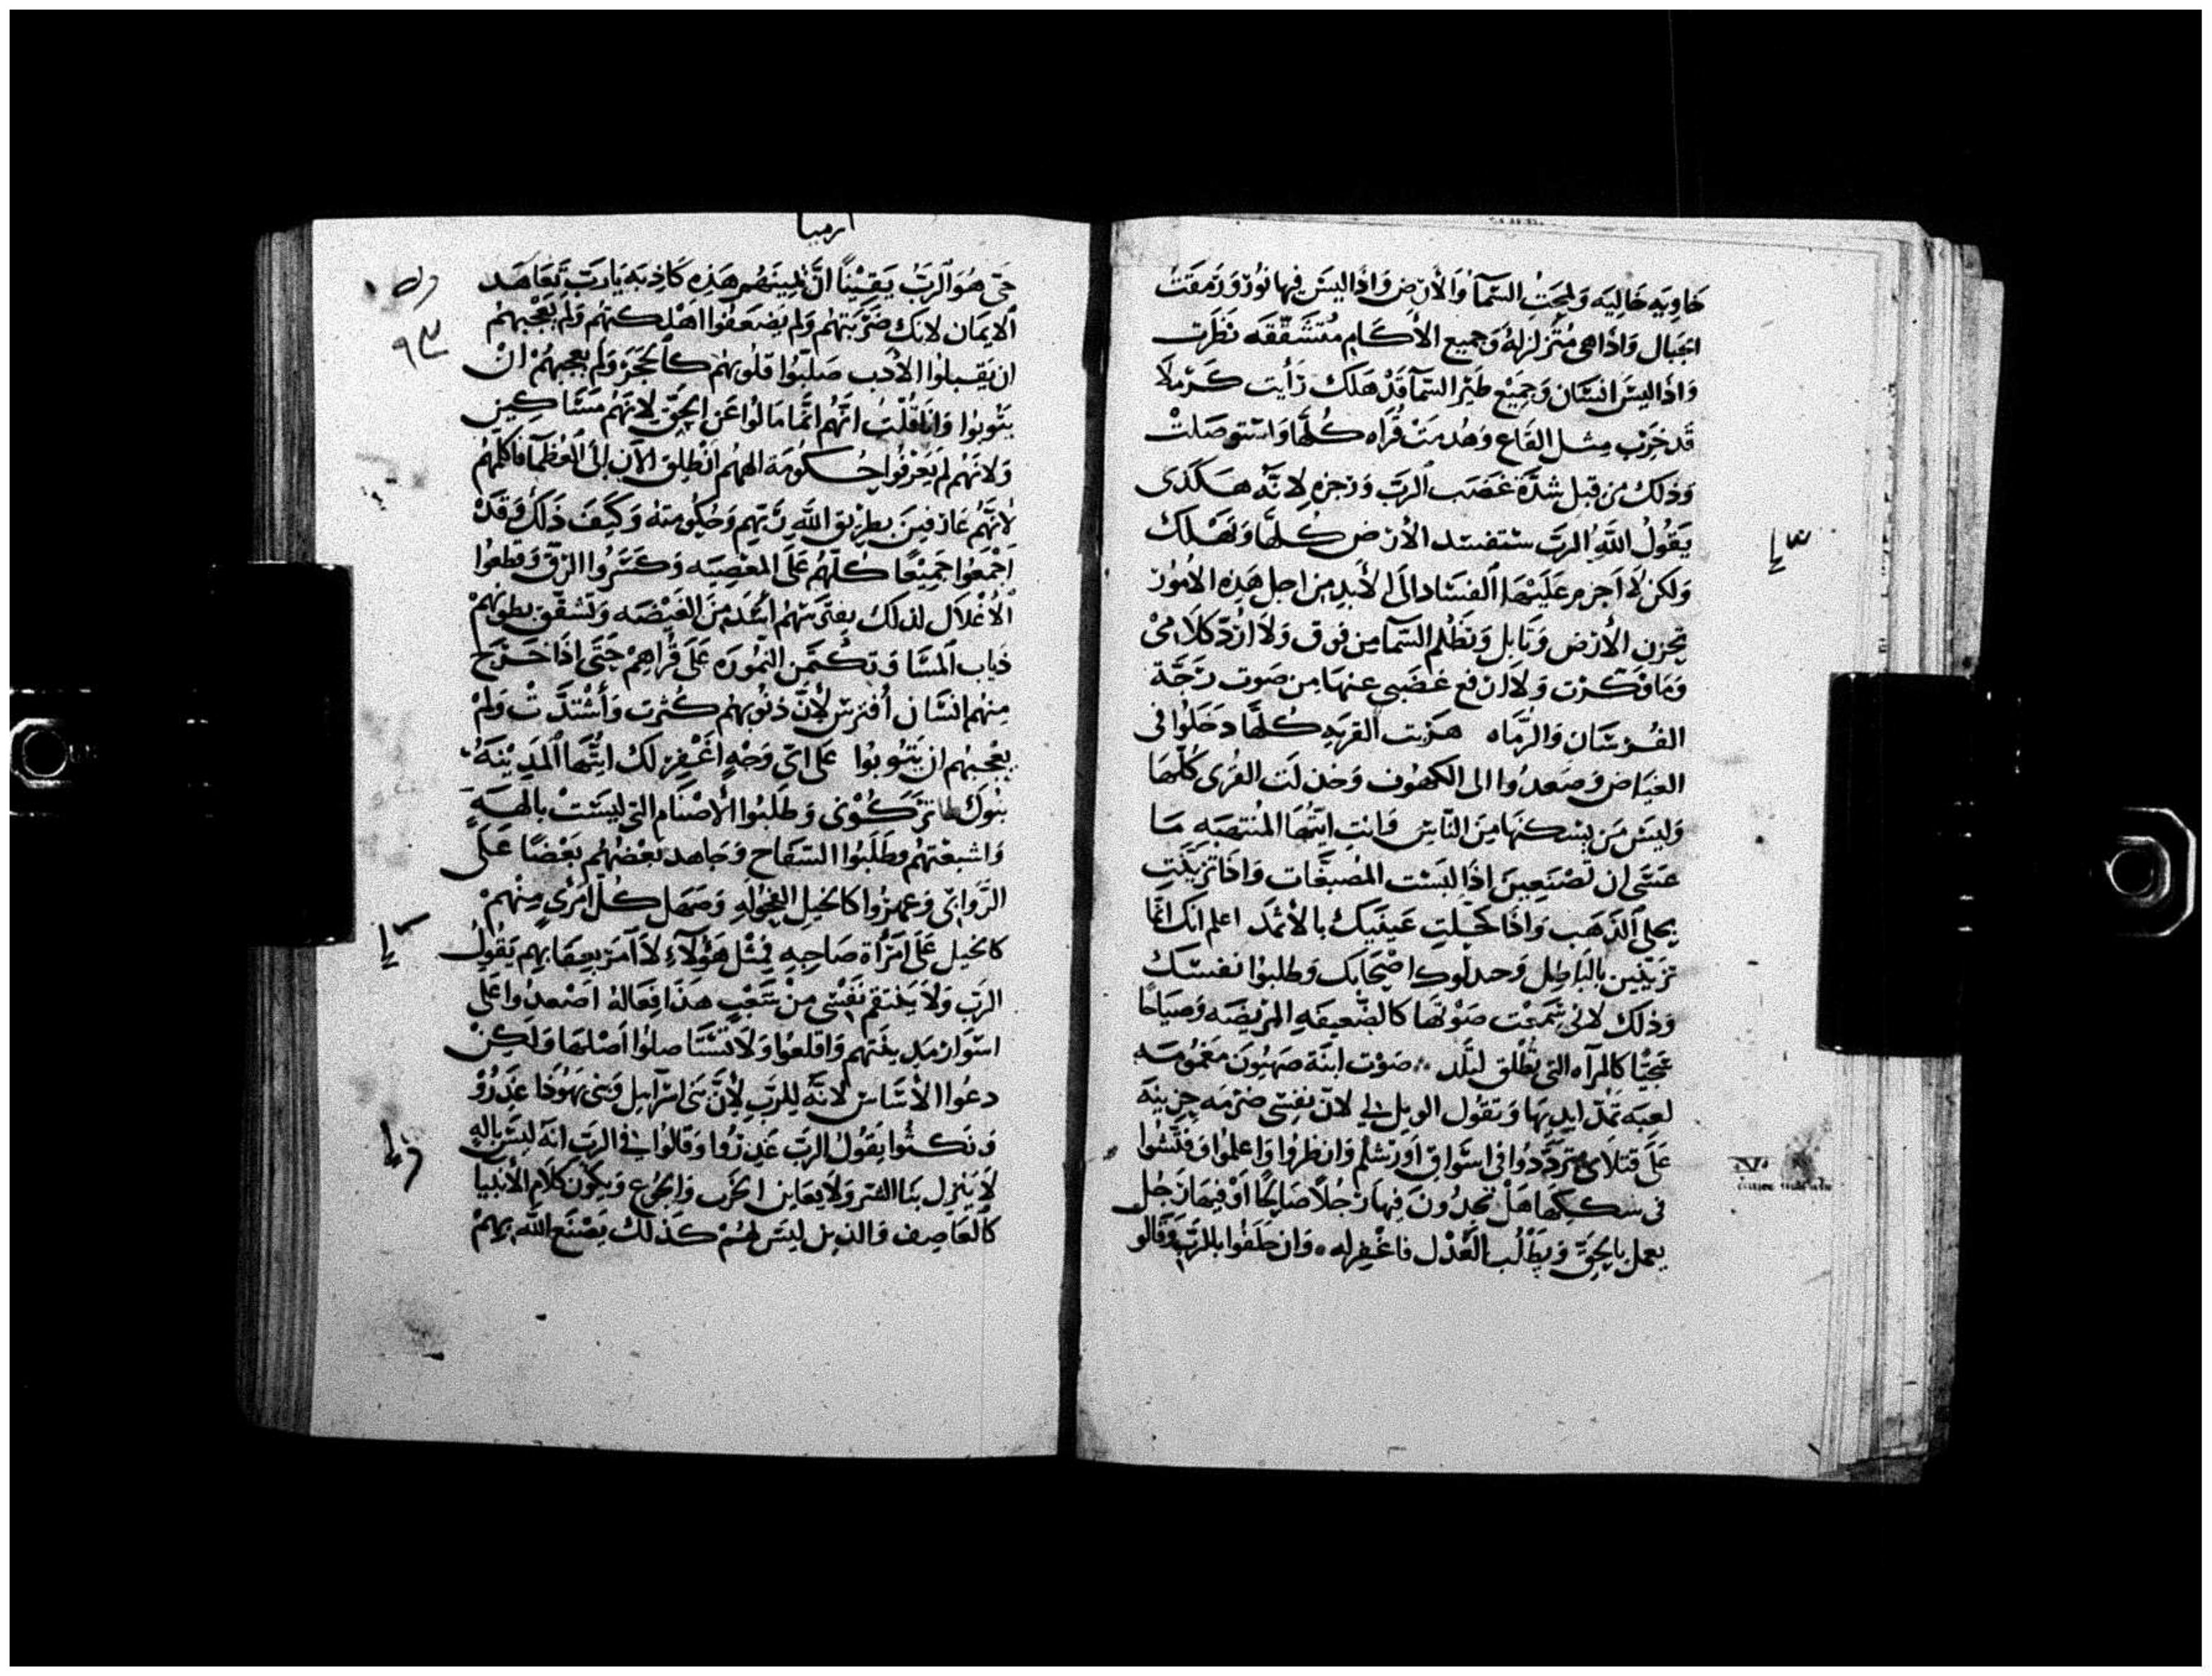 خاويه خاليه ولمحت السمآ والأرض واذا ليس فيها نور ورمقت
الجبال واذا هى متزلزلة وجميع الأكام متشققه نظرت
واذا ليس انسان وجميع طير السمآ قد هلك رأيت كرملا
قد خرب مثل القاع وهدمت قراه كلها واستوصلت
وذلك من قبل شدة غضب الرب وزجره لانه هكذى
يقول الله الرب ستفسد الأرض كلها وتهلك
ولكن لا اجزم عليها الفساد الى الأبد من اجل هذه الأمور
تحزن الأرض وتابل وتظلم السمآ من فوق ولا ارد كلامى
وما فكرت ولا ارفع غضبى عنها من صوت رجة
الفرسان والرماه هربت القريه كلها دخلوا فى
الغياض وصعدوا الى الكهوف وخذلت القرى كلها
وليس من يسكنها من الناس وانت ايتها المنتهبه ما
عسى ان تصنعين اذا لبست المصبغات واذا تزينت
بحلى الذهب واذا كحلت عينيك بالأثمد اعلم انك انما
تزينين بالباطل وخذلوك اصحابك وطلبوا نفسك
وذلك لانى سمعت صوتها كالضعيفه المريضه وصياحا
عجيبا كالمرآه التى تطلق لتلد صوت ابنة صهيون مغمومه
لعبه تمد ايديها وتقول الويل لى لان نفسى ضرمه حزينة
على قتلاى ترددوا فى اسواق اورشلم وانظروا واعلموا وفتشوا
فى سككها هل تجدون فيها رجلا صالحا او فيها رجل
يعمل بالحق ويطلب العدل فاغفر له وان حلفوا بالرب وقالو
ارميا
حى هو الرب يقينا ان يمينهم هذه كاذبه يارب تعاهد
الايمان لانك ضربتهم ولم يضعفوا اهلكتهم ولم يعجبهم
ان يقبلوا الأدب صلبوا قلوبهم كالحجر ولم يعجبهم ان
يتوبوا وانا قلت انهم انما مالوا عن الحق لانهم مساكين
ولانهم لم يعرفوا حكومة الههم انطلق الآن الى العظمآ فاكلمهم
لأنهم عارفين بطريق الله ربهم وحكومته وكيف ذلك وقد
اجمعوا جميعا كلهم على المعصيه وكسروا الزق وقطعوا
الأغلال لذلك يفترسهم اسد من الغيضه وتشقق بطونهم
ذياب المسا وتكمن النموره على قراهم حتى اذا خرج
منهم انسان أفترس لأن ذنوبهم كثرت وأشتدت ولم
يعجبهم ان يتوبوا على اى وجه اغفر لك ايتها المدينة
بنوك تركونى وطلبوا الاصنام التى ليست بالهة
واشبعتهم وطلبوا السفاح وجاهد بعضهم بعضا على
الزوانى وعهروا كالخيل الفحوله وصهل كل امرى منهم
كالخيل على امرأة صاحبه فمثل هؤلاء لا آمر بعقابهم يقول
الرب ولا ينتقم نفسى من شعب هذا فعاله اصعدوا على
اسوار مدينتهم واقلعوا ولا تستاصلوا أصلها ولكن
دعوا الأساس لانه للرب لأن بنى اسرآيل وبنى يهوذا غدروا
ونكثوا يقول الرب غدروا وقالوا فى الرب انه ليس باله
لا ينزل بنا الشر ولا يعاين الحرب والجوع ويكون كلام الأنبيا
كالعاصف والذيل ليس لهم كذلك يصنع الله بهم